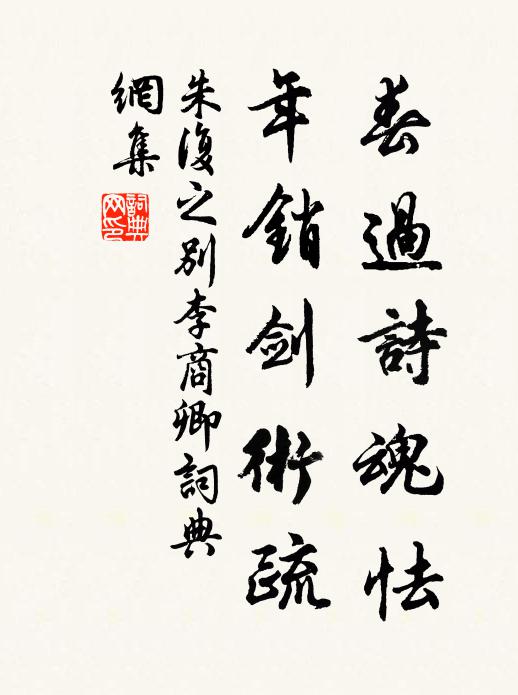 春過詩魂怯
年銷劍術疏
朱復之別李商卿詞典
網集
詞典网印